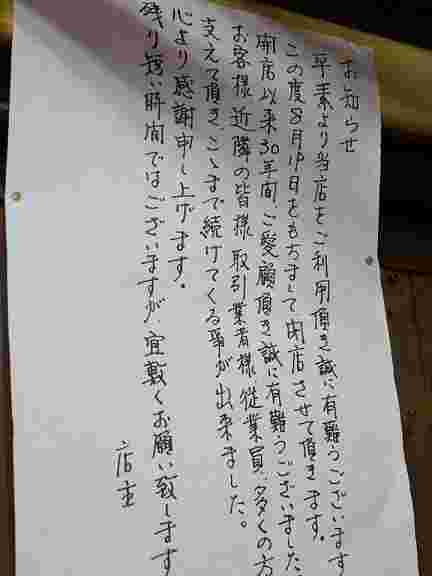 お知らせ
平素より当店をご利用頂き誠に有難うございます
この度8月19日をもちまして閉店させて頂きます。
開店以来30年間ご愛顧頂き誠に有難うございました
お客様近隣の皆様取引業者様従業員、多くの方
支えて頂き、ここまで続けてくる事が出来ました。
心より感謝申し上げます。
残り短い時間ではございますが、宜敷くお願い致します
店主